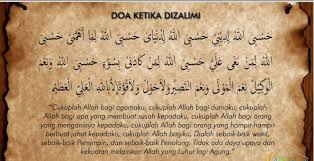 DOA KETIKA DIZALIMI
حَسْبِيَ اللهُ لِدِيْنِيْ حَسْبِيَ اللهُ لِدُنْيَايَ حَسْبِيَ اللهُ لِمَا أَهَمَّنِيْ حَسْبِيَ
اللهُ لِمَنْ بَغَى عَلَيَّ حَسْبِيَ اللهُ لِمَنْ كَادَنِيْ بِسُوْءٍ حَسْبِيَ اللهُ وَنِعْمَ
الْوَكِيْلُ نِعْمَ الْمَوْلَى وَنِعْمَ النَّصِيْرُ وَلَاحَوْلَ وَلَاقُوَّةَ إِلَّا بِاللهِ الْعَلِيِّ الْعَظِيْمِ
“Cukuplah Allah bagi agamaku, cukuplah Allah bagi duniaku, cukuplah
Allah bagi apa yang membuat susah kepadaku, cukuplah Allah bagi orang
yang menganiaya kepadaku, cukuplah Allah bagi orang yang hampir-hampir
berbuat jahat kepadaku, cukuplah Allah bagiku. Dialah sebaik-baik wakil,
sebaik-baik Pemimpin, dan sebaik-baik Penolong. Tidak ada daya upaya dan
kekuatan melainkan Allah yang Luhur lagi Agung.”